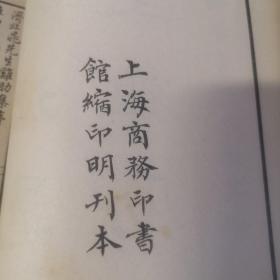 上海商務印書
館縮印明刊本